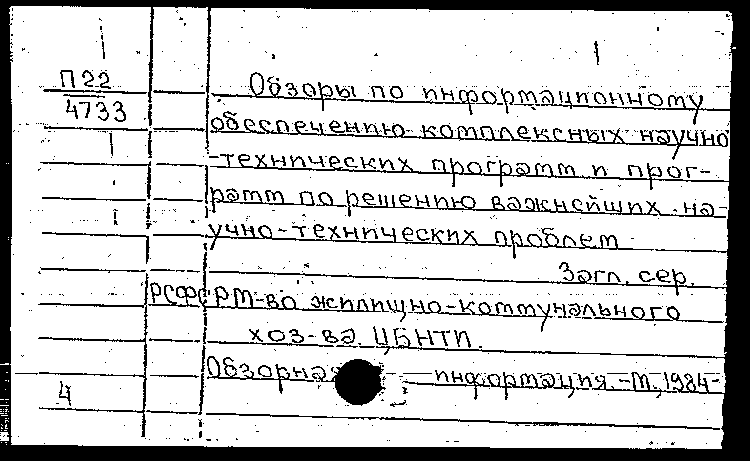 П22
4733
Обзоры по информационному
обеспечению комплексных научно
-технических программ и прог-
рамм по решению важнейших на-
учно-технических проблем
Загл. сер.
РСФСР М-во жилищно-коммунального
хоз-ва. ЦБНТИ.
Обзорная информация. -М., 1984-
4